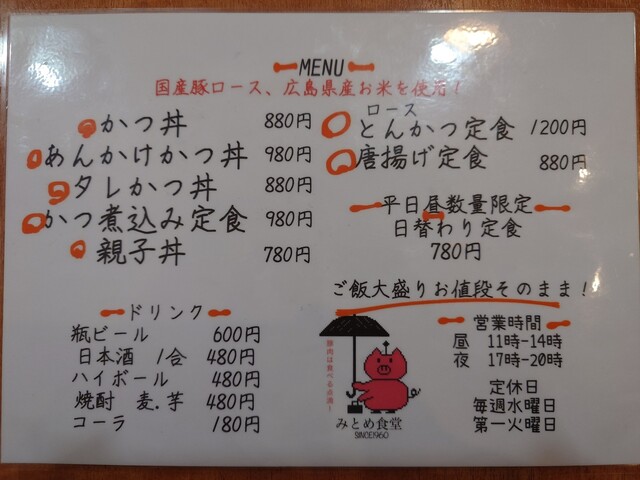 MENU
国産豚ロース、広島県産お米を使用！
かつ丼 880円
あんかけかつ丼 980円
タレかつ丼 880円
かつ煮込み定食 980円
親子丼 780円
ロース
とんかつ定食 1200円
唐揚げ定食 880円
平日昼数量限定
日替わり定食
780円
ご飯大盛りお値段そのまま！
ドリンク
瓶ビール 600円
日本酒 1合 480円
ハイボール 480円
焼酎 麦.芋 480円
コーラ 180円
豚肉は食べる点滴！
みとめ食堂
SINCE1960
営業時間
昼 11時-14時
夜 17時-20時
定休日
毎週水曜日
第一火曜日